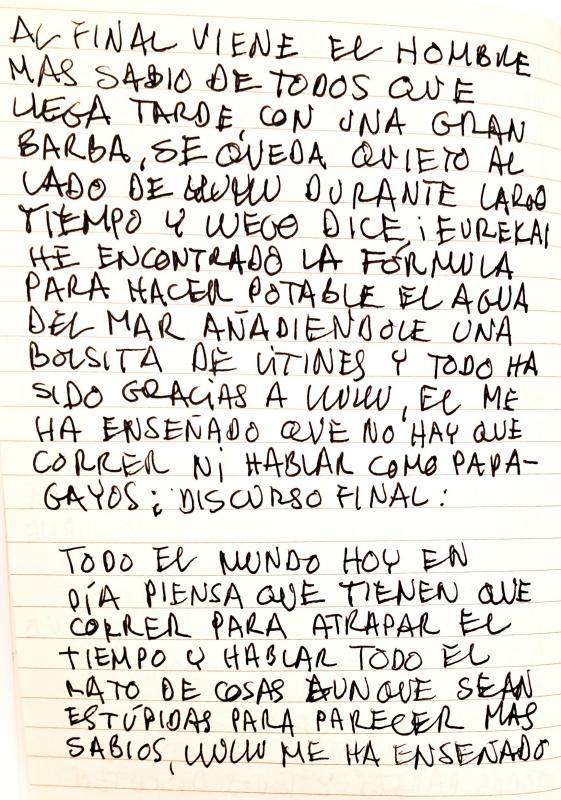 AL FINAL VIENE EL HOMBRE
MAS SABIO DE TODOS QUE
LLEGA TARDE, CON UNA GRAN
BARBA, SE QUEDA QUIETO AL
LADO DE LULULU DURANTE LARGO
TIEMPO Y LUEGO DICE, ¡EUREKA!
HE ENCONTRADO LA FÓRMULA
PARA HACER POTABLE EL AGUA
DEL MAR AÑADIENDOLE UNA
BOLSITA DE LITINES Y TODO HA
SIDO GRACIAS A LULULU, EL ME
HA ENSEÑADO QUE NO HAY QUE
CORRER NI HABLAR COMO PAPA-
GAYOS; DISCURSO FINAL:
TODO EL MUNDO HOY EN
DÍA PIENSA QUE TIENEN QUE
CORRER PARA ATRAPAR EL
TIEMPO Y HABLAR TODO EL
RATO DE COSAS AUNQUE SEAN
ESTÚPIDAS PARA PARECER MAS
SABIOS, LULULU ME HA ENSEÑADO